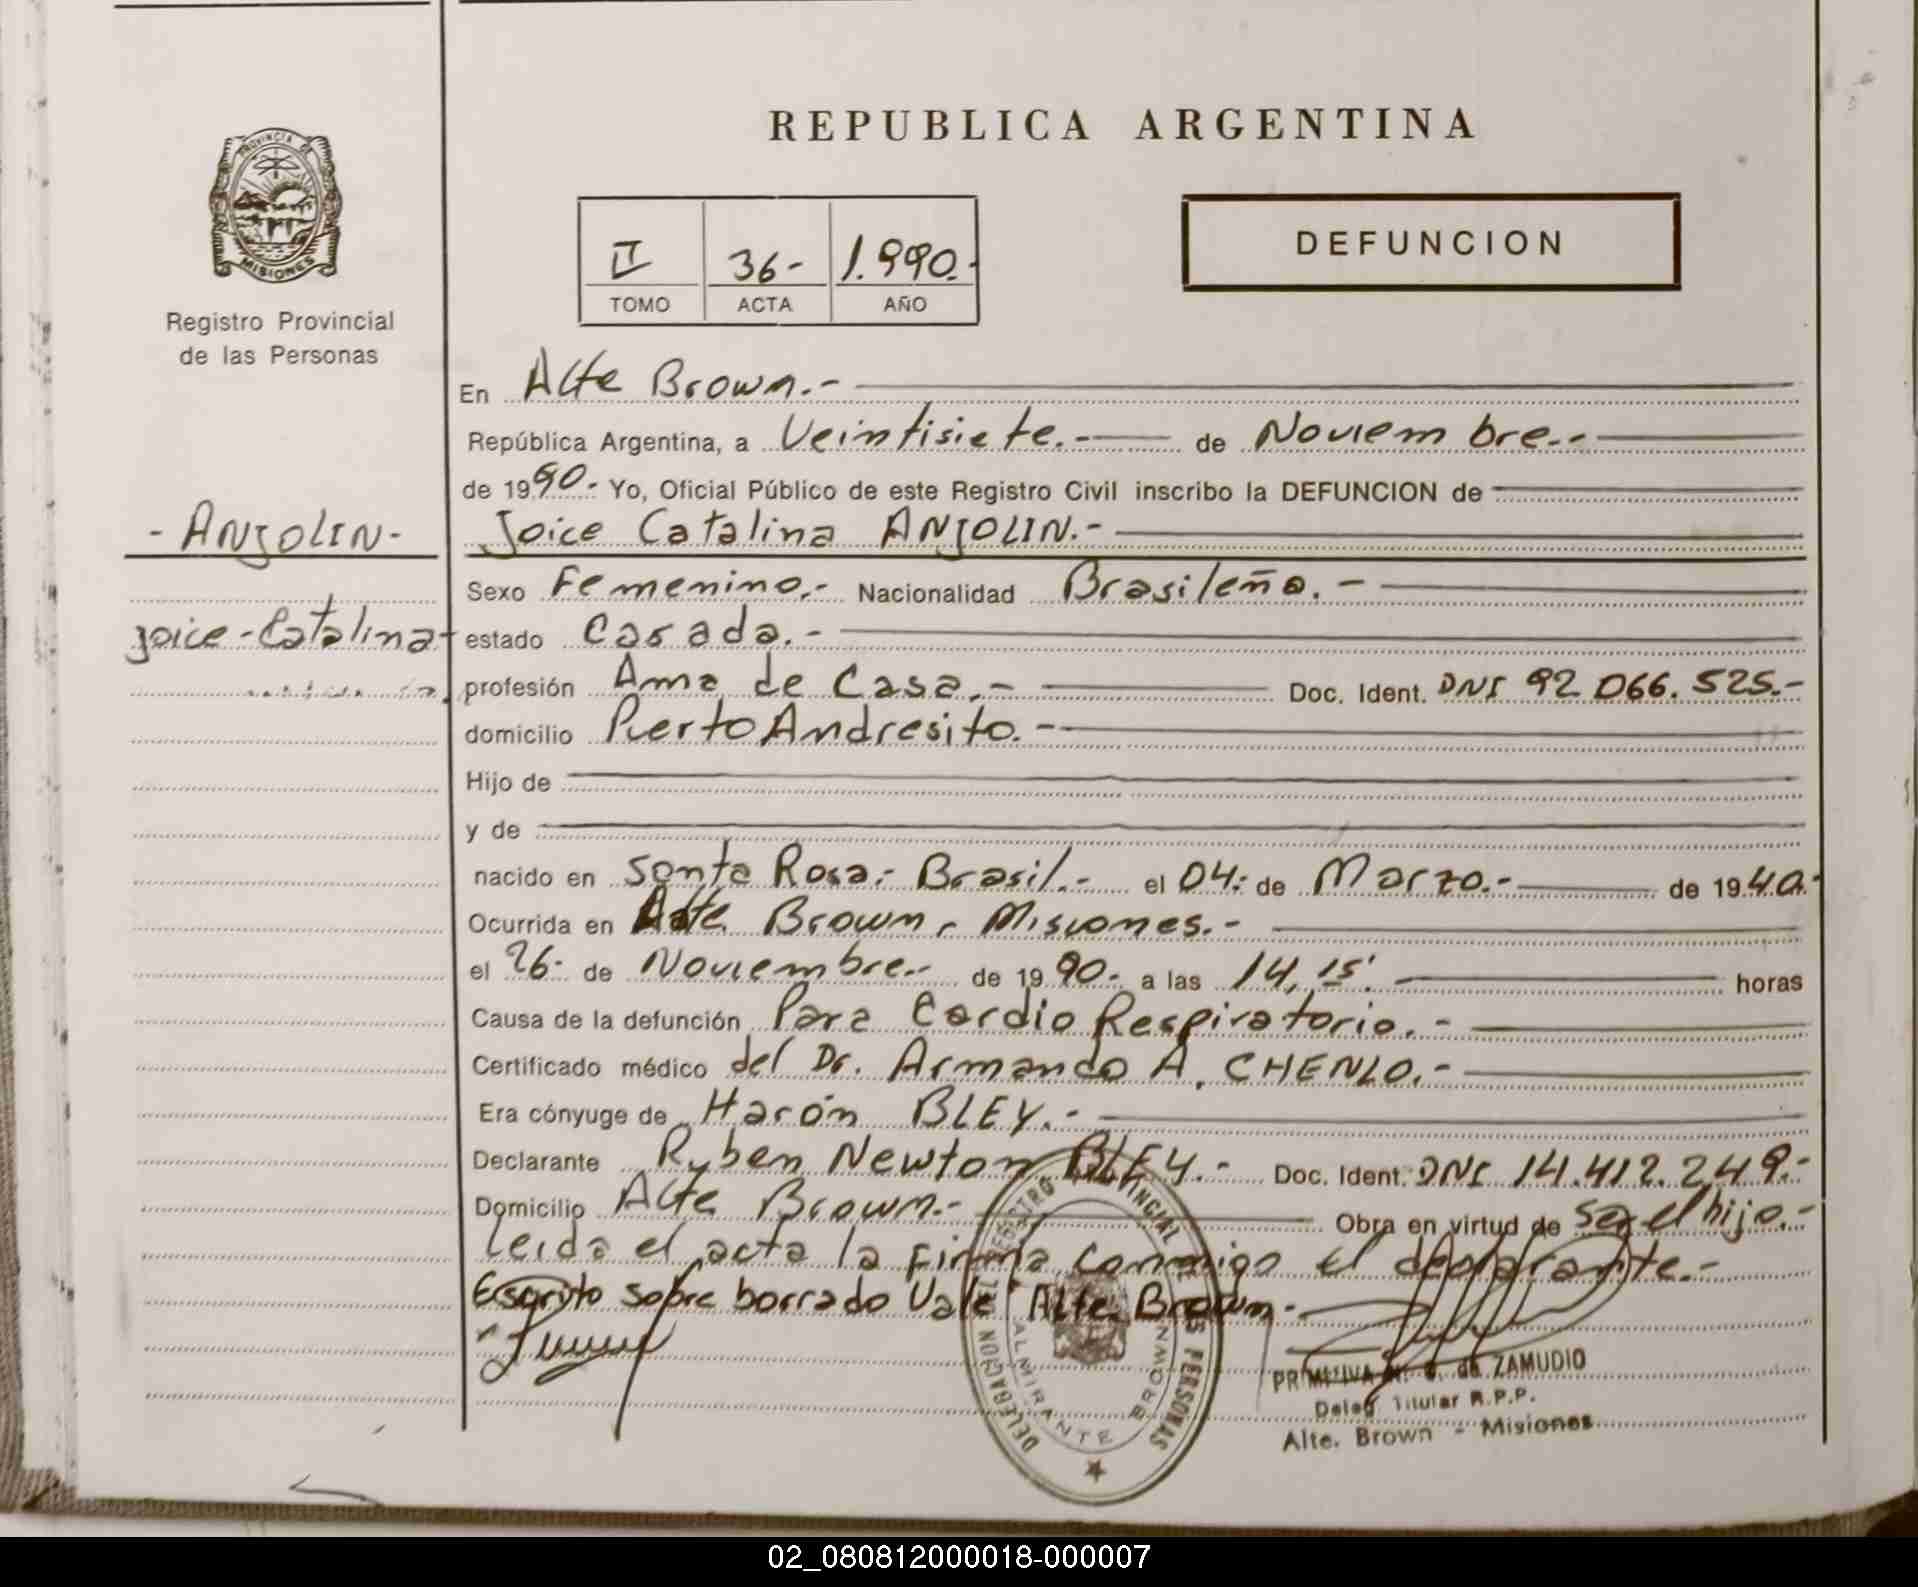 REPUBLICA ARGENTINA
PROVINCIA DE
MISIONES
Registro Provincial
de las Personas
II 36- 1.990.-
TOMO ACTA AÑO
DEFUNCION
En Alte Brown.-
República Argentina, a Veintisiete.- de Noviembre.-
de 1990.- Yo, Oficial Público de este Registro Civil inscribo la DEFUNCION de
- ANJOLIN-
Joice Catalina ANJOLIN.-
Sexo Femenino.- Nacionalidad Brasileña.-
Joice-Catalina
estado Casada.-
profesión Ama de Casa.- Doc. Ident. DNI 92 066.525.-
domicilio Puerto Andresito.-
Hijo de
y de
nacido en Santa Rosa.- Brasil.- el 04.- de Marzo.- de 1940.-
Ocurrida en Alte Brown, Misiones.-
el 26.- de Noviembre.- de 1990.- a las 14,15'. horas
Causa de la defunción Para Cardio Respiratorio.-
Certificado médico del Dr. Armando A. CHENLO.-
Era cónyuge de Harón BLEY.-
Declarante Ruben Newton BLEY.- Doc. Ident. DNI 14.412.249.-
Domicilio Alte Brown.- Obra en virtud de ser el hijo.-
Leida el acta la firma conmigo el declarante.-
Escrito sobre borrado Vale Alte. Brown.-
DELEGACION DEL REGISTRO PROVINCIAL DE LAS PERSONAS
ALMIRANTE BROWN
PRIMITIVA de ZAMUDIO
Deleg. Titular R.P.P.
Alte. Brown - Misiones
02_080812000018-000007